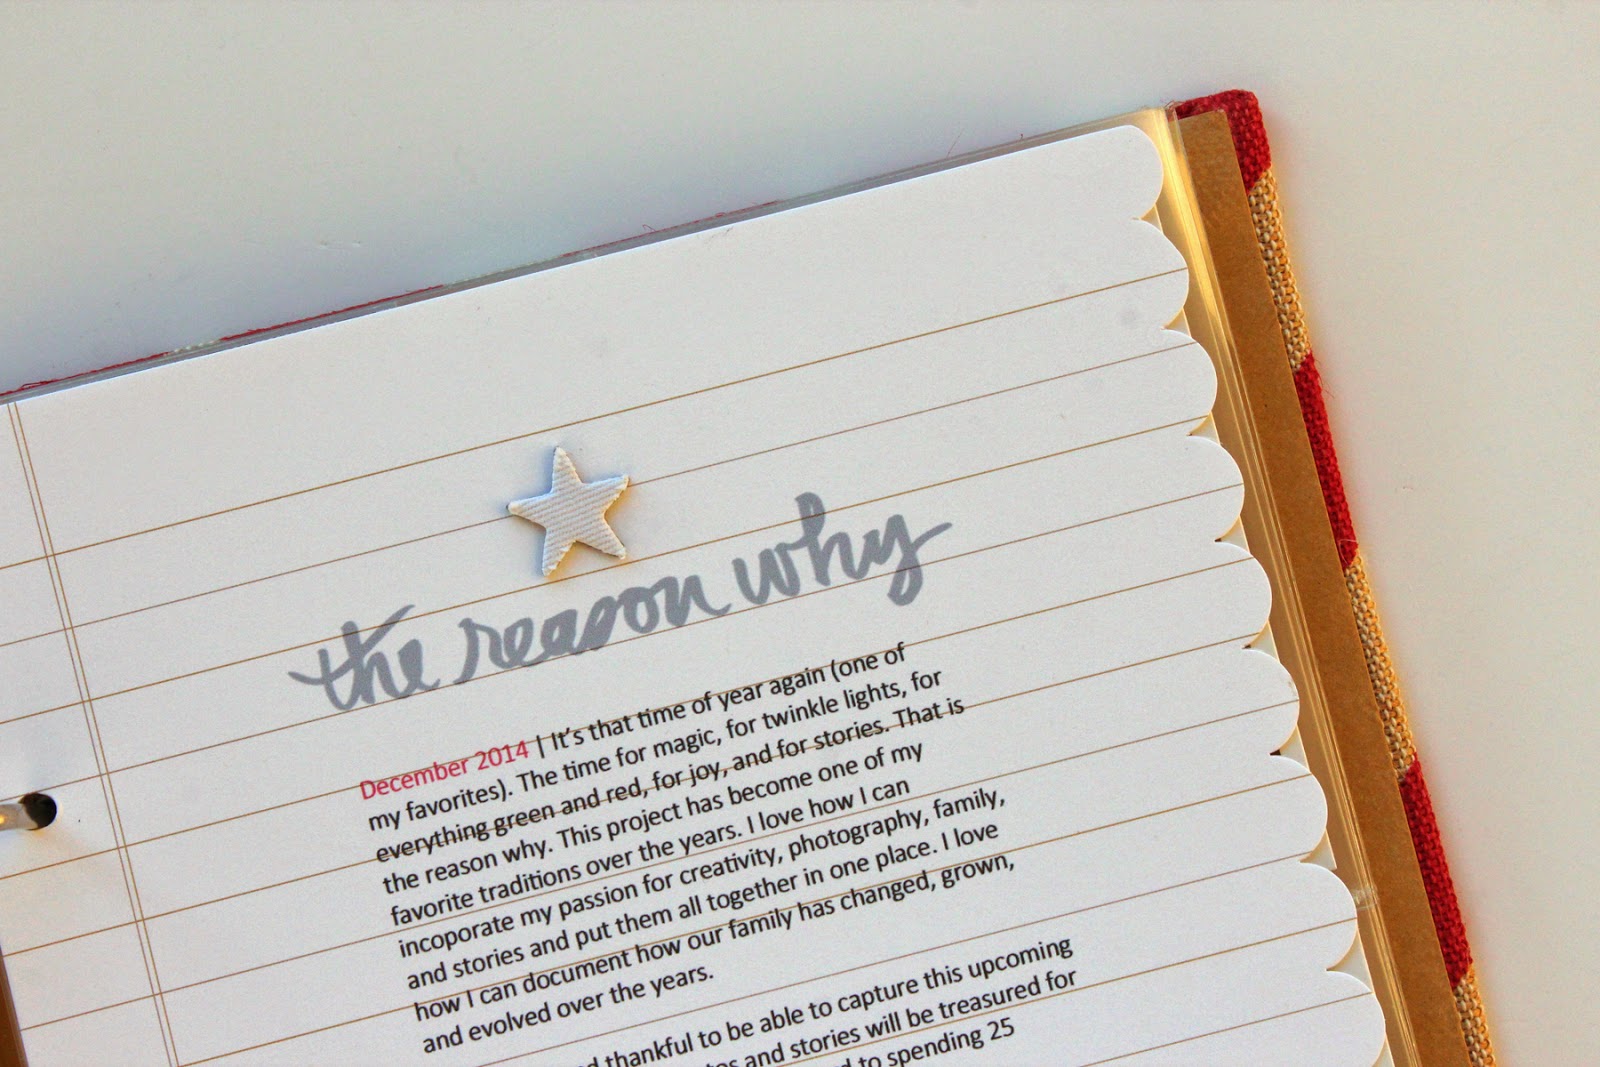 the reason why
December 2014 | It's that time of year again (one of
my favorites). The time for magic, for twinkle lights, for
everything green and red, for joy, and for stories. That is
the reason why. This project has become one of my
favorite traditions over the years. I love how I can
incoporate my passion for creativity, photography, family,
and stories and put them all together in one place. I love
how I can document how our family has changed, grown,
and evolved over the years.
thankful to be able to capture this upcoming
and stories will be treasured for
to spending 25